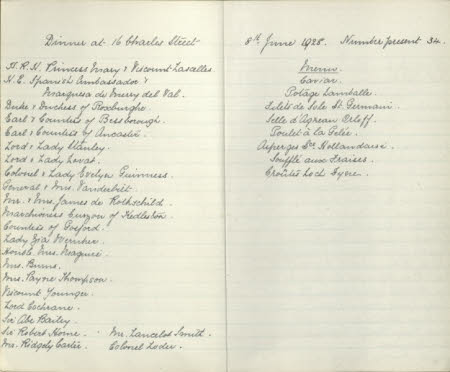 Dinner at 16 Charles Street
H.R.H. Princess Mary & Viscount Lascelles
H.E. Spanish Ambassador &
Marquesa de Merry del Val.
Duke & Duchess of Roxburghe.
Earl & Countess of Bessborough.
Earl & Countess of Ancaster.
Lord & Lady Stanley.
Lord & Lady Lovat.
Colonel & Lady Evelyn Guinness.
General & Mrs. Vanderbilt.
Mr. & Mrs. James de Rothschild.
Marchioness Curzon of Kedleston.
Countess of
Lady Zia Wernher.
Honble Mrs. Maguire.
Mrs. Burns.
Mrs. Payne Thompson.
Viscount Younger.
Lord Cochrane.
Sir Abe Bailey.
Sir Robert Horne. Mr. Lancelot Smith.
Mr. Ridgely Carter. Colonel Loder.
8th June 1928. Number present 34.
Menu
Caviar.
Potage Lamballe.
Filets de Sole St. Germain.
Selle d'Agneau Orloff.
Poulet à la Gelée.
Asperges Sce Hollandaise.
Soufflé aux Fraises.
Croûtes Loch Fyne.